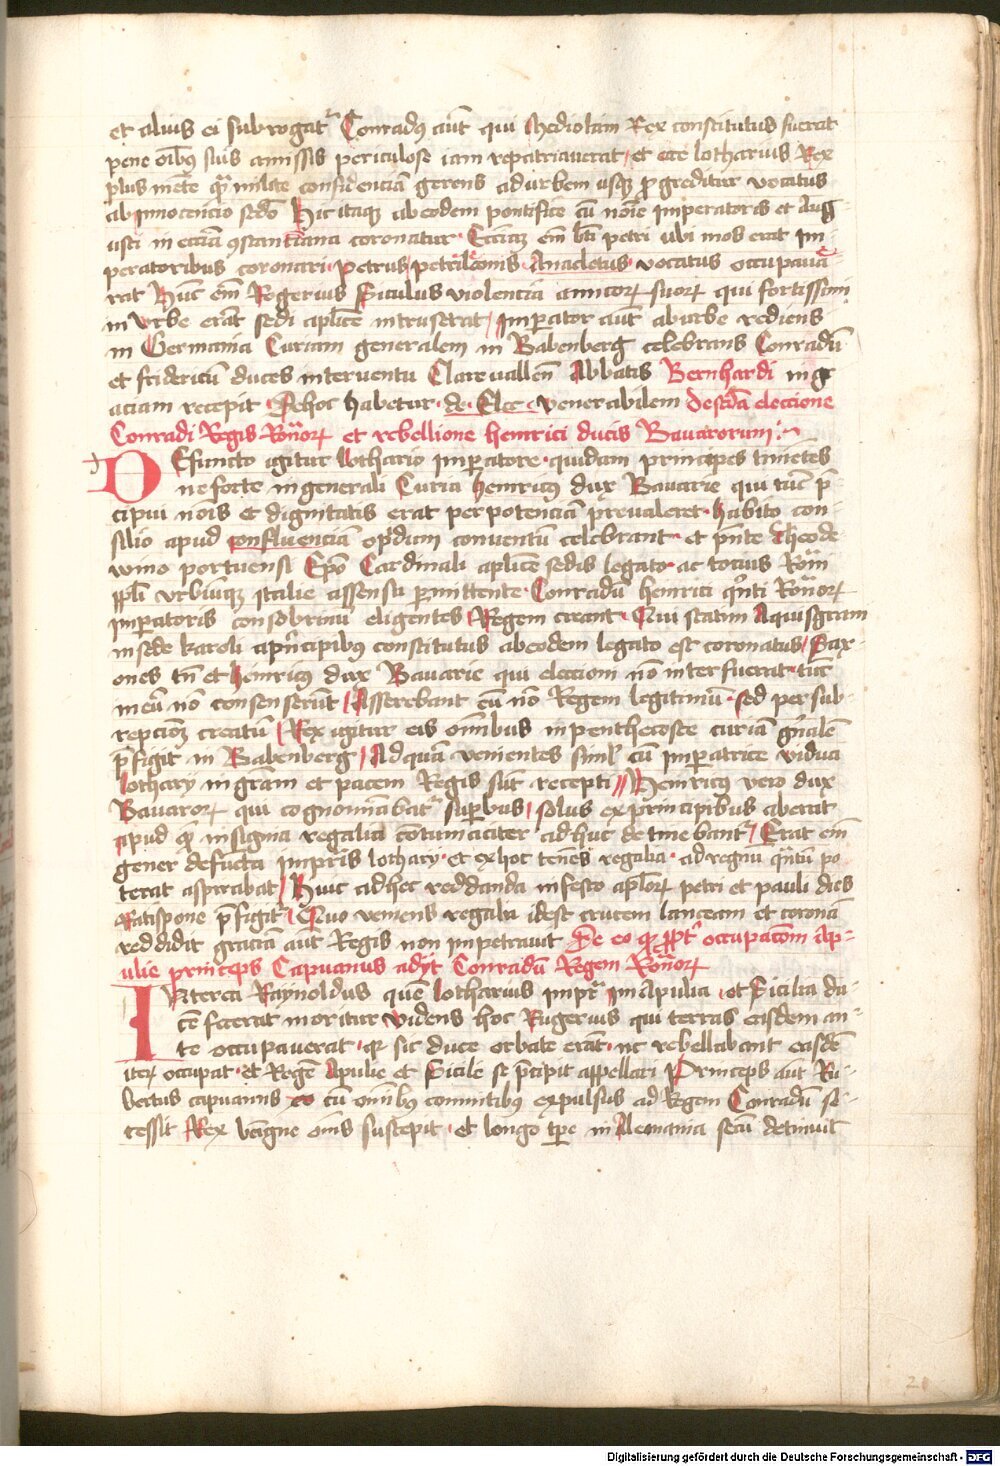 et alius ei subrogat͛ Conradꝯ aūt qui Mediolani Rex constitutus fuerat
pene oībꝯ suis amissis periculose iam repatriauerat et ecce lotharius Rex
plus mēte qͣ milite confidenciā gerens ad urbem usqꝫ ꝓgreditur vocatus
ab Innocencio sedō Hic itaqꝫ ab eodem pontifice cū noīe Imperatoris et Aug
usti in ecciā ꝯstantiana coronatur Ecciaꝫ em̄ bt̄i petri ubi mos erat im
peratoribus coronari petrus petrileonis Anacletus vocatus occupaua
rat Hūc em̄ Rogerius Siculus violencia amicoꝝ suoꝝ qui fortissimi
in Vrbe erāt sedi aplīce intruserat Imꝑator aūt ab urbe rediens
in Germania Curiam generalem in Babenberg celebrans Conradū
et fridericū duces interuentu Clareuallen̄ Abbatis Bernhardi in gr
aciam recepit hoc habetur de Elec venerabilem De scd̄a eleccione
Conradi Regis Romͣoꝝ et rebellione heinrici ducis Bauarorum
DEfuncto igitur lothario Imꝑatore quidam principes timētes
ne forte in generali Curia heinricꝯ dux Bauarie qui tūc p̄
cipui noīs et dignitatis erat per potenciā preualeret habito con
silio apud confluenciā opidum conuentū celebrant et pn̄te theode
wino portuensi Ep̄o Cardinali aplīce sedis legato ac tocius Romͣi
ppl̄i vrbiūqꝫ Italie assensū ꝓmittente Conradū henrici qͥnti Romͣoꝝ
Imꝑatoris consobrinū eligentes Regem creant Qui statim Aquisgrani
in sede karoli a pn̄cipibus constitutus ab eodem legato est coronatus Sax
ones tn̄ et heinricꝯ dux Bauarie qui eleccioni nō interfuerat tūc
in eū nō consenserūt Asserebant eū nō Regem legitimū sed per sub
repcionē creatū Rex igitur eis omnibus in penthecoste curiā gn̄alē
p̄figit in Babenberg Ad quā venientes simͥl cū Imꝑatrice vidua
lothary in grām et pacem Regis sūt recepti Heinricꝯ vero dux
Bauaroꝝ qui cognominabat͛ suꝑbus solus ex principibus aberat
apud qͦ insignia regalia cōtumaciter adhuc detinebant͛ Erat em̄
gener defūcti Impr̄is lothary et ex hoc tenēs regalia ad regnū qͣntū po
terat aspirabat Huic ad hec reddenda in festo aplōꝝ petri et pauli dies
Ratispone p̄figit͛ Quo veniens regalia idest crucem lanceam et coronā
reddidit graciā aūt Regis non impetrauit De eo qꝫ ꝓpt͛ occupacōm Ap
ulie princeps Capuanus adyt Conradū Regem Romͣoꝝ
INterea Raynoldus quē lotharius Impr̄ in Apulia et Sicilia du
cē fecerat moritur videns hoc Rugerius qui terras easdem an
te occupauerat qꝫ sic duce orbate erāt nc rebellabant easdē
iteꝝ occupat et Regē Apulie et Sicilie se p̄cipit appellari Princeps aūt Ru
bertus capuanus cū omībꝯ comitibꝯ expulsus ad Regem Conradū se
cessit Rex benigne om̄s suscepit et longo tꝑe in Alemania secū detinuit